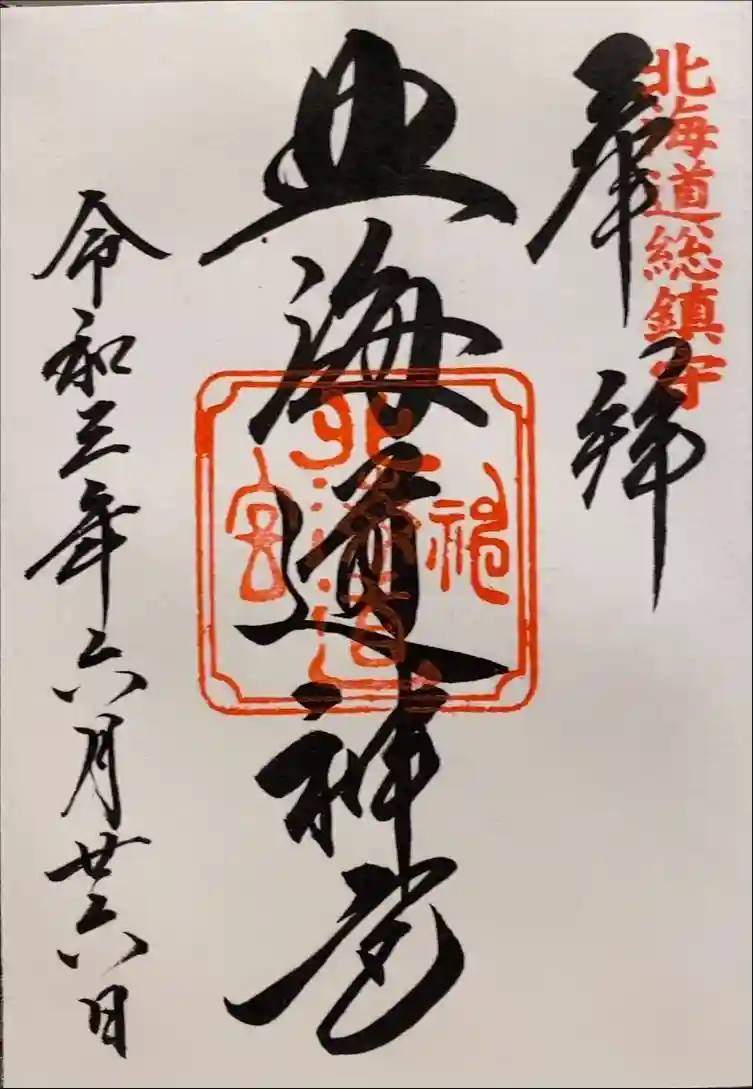 北海道総鎮守
奉拝
北海道神宮
北海道神宮
令和三年六月廿六日